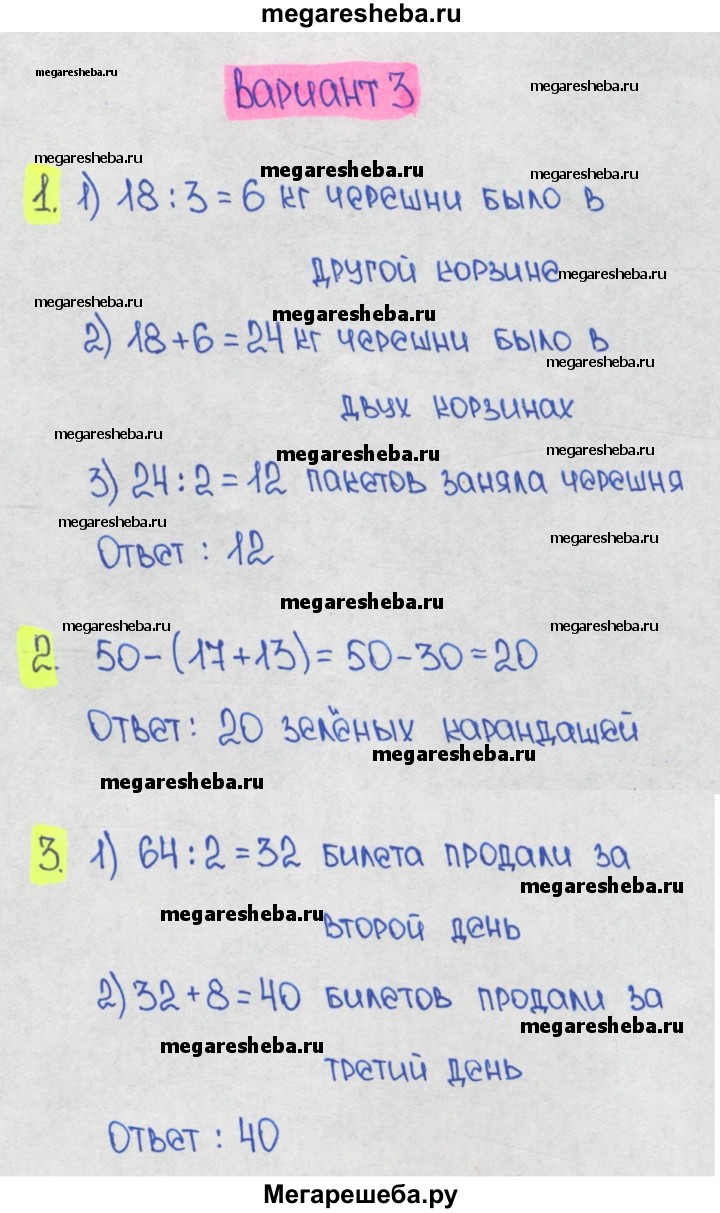 megaresheba.ru
megaresheba.ru
Вариант 3
megaresheba.ru
megaresheba.ru
megaresheba.ru
megaresheba.ru
1. 1) 18 : 3 = 6 кг черешни было в
другой корзине
megaresheba.ru
megaresheba.ru
megaresheba.ru
2) 18 + 6 = 24 кг черешни было в
megaresheba.ru
двух корзинах
megaresheba.ru
megaresheba.ru
megaresheba.ru
3) 24 : 2 = 12 пакетов заняла черешня
megaresheba.ru
megaresheba.ru
Ответ : 12
megaresheba.ru
megaresheba.ru
megaresheba.ru
2. 50 - (17 + 13) = 50 - 30 = 20
Ответ : 20 зелёных карандашей
megaresheba.ru
megaresheba.ru
3. 1) 64 : 2 = 32 билета продали за
megaresheba.ru
megaresheba.ru
второй день
2) 32 + 8 = 40 билетов продали за
megaresheba.ru
megaresheba.ru
третий день
Ответ : 40
Мегарешеба.ру